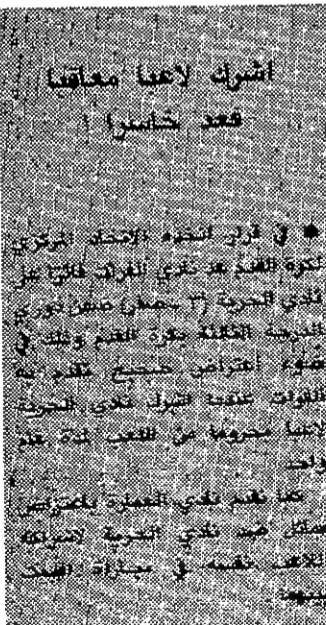 اشرك لاعبا معاقبا
فعد خاسرا
● في قرار اتخذه الاتحاد المركزي
لكرة القدم عد نادي الفرات فائزا على
نادي الحرية (٣ - صفر) ضمن دوري
الدرجة الثالثة بكرة القدم وذلك في
ضوء اعتراض صحيح تقدم به
الفرات عندما اشرك نادي الحرية
لاعبا محروما من اللعب لمدة عام
واحد
كما تقدم نادي العمارة باعتراض
مماثل ضد نادي الحرية لاشراكه
اللاعب نفسه في مباراة اقيمت
بينهما